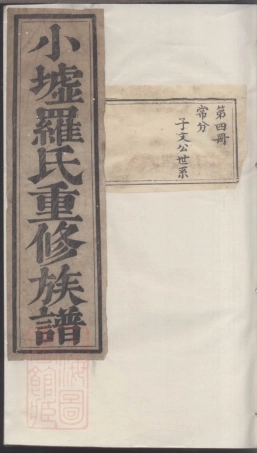 小墟羅氏重修族譜
第四冊
常分
子文公世系